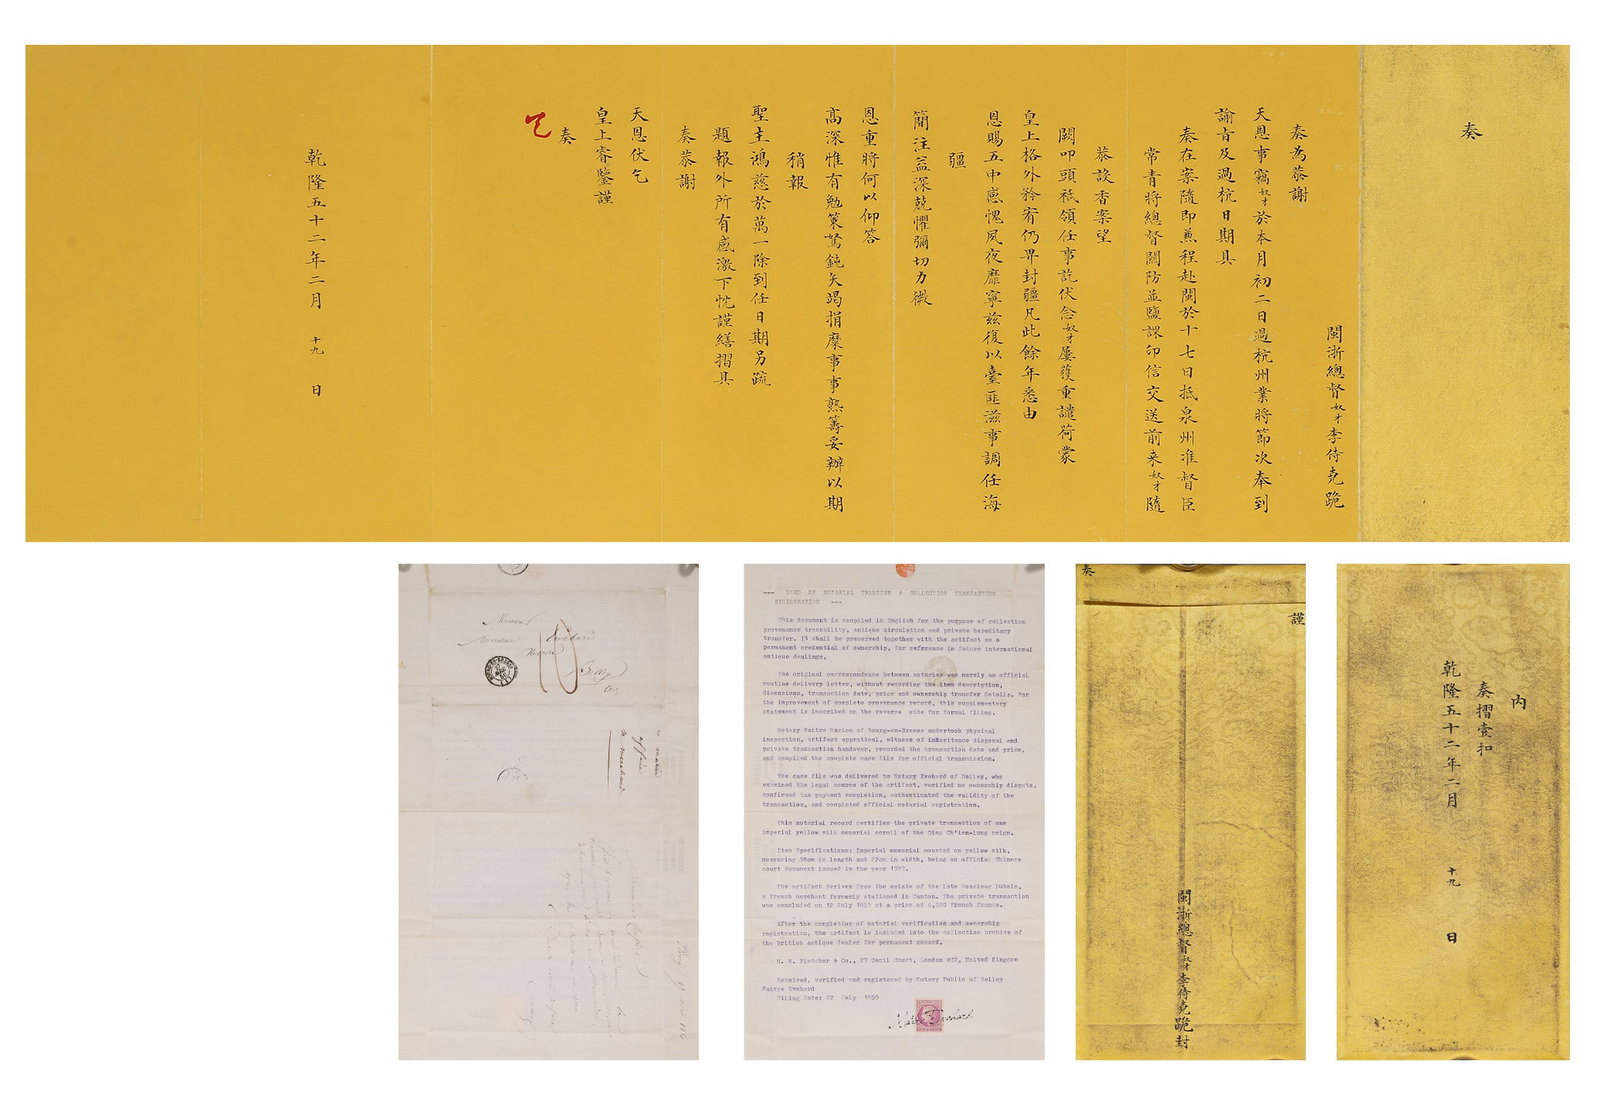 奏
閩浙總督奴才李侍堯跪
奏為恭謝
天恩事竊奴才於本月初二日過杭州業將節次奉到
諭旨及過杭日期具
奏在案隨即兼程赴閩於十七日抵泉州准督臣
常青將總督關防並鹽課印信交送前來奴才隨
恭設香案望
闕叩頭祗領任事訖伏念奴才屢獲重譴荷蒙
皇上格外矜宥仍畀封疆凡此餘年悉由
恩賜五中感愧夙夜靡寧茲復以臺匪滋事調任海
疆
簡注益深兢懼彌切力微
恩重將何以仰答
高深惟有勉策駑鈍矢竭捐糜事事熟籌妥辦以期
稍報
聖主鴻慈於萬一除到任日期另疏
題報外所有感激下忱謹繕摺具
奏恭謝
天恩伏乞
皇上睿鑒謹
奏
乾隆五十二年二月 十九 日
--- DEED OF NOTARIAL TRANSFER & COLLECTION TRANSACTION
REGISTRATION ---
This document is compiled in English for the purpose of collection
provenance tracebility, antique circulation and private hereditary
transfer. It shall be preserved together with the artifact as a
permanent credential of ownership, for reference in future international
antique dealings.
The original correspondence between notaries was merely an official
routine delivery letter, without recording the item description,
dimensions, transaction date, price and ownership transfer details. For
the improvement of complete provenance record, this supplementary
statement is inscribed on the reverse side for formal filing.
Notary Maitre Marion of Bourg-en-Bresse undertook physical
inspection, artifact appraisal, witness of inheritance disposal and
private transaction handover, recorded the transaction date and price,
and compiled the complete case file for official transmission.
The case file was delivered to Notary Evehard of Belley, who
examined the legal source of the artifact, verified no ownership dispute,
confirmed tax payment completion, authenticated the validity of the
transaction, and completed official notarial registration.
This notarial record certifies the private transaction of one
imperial yellow silk memorial scroll of the Qing Ch'ien-lung reign.
Item Specifications: Imperial memorial mounted on yellow silk,
measuring 38cm in length and 22cm in width, being an official Chinese
court document issued in the year 1787.
The artifact derives from the estate of the late Monsieur Dubois,
a French merchant formerly stationed in Canton. The private transaction
was concluded on 12 July 1850 at a price of 4,200 French francs.
After the completion of notarial verification and ownership
registration, the artifact is included into the collection archive of
the British antique dealer for permanent record.
H. M. Fletcher & Co., 27 Cecil Court, London WC2, United Kingdom
Received, verified and registered by Notary Public of Belley
Maitre Evehard
Filing Date: 22 July 1850
奏
謹
閩浙總督奴才李侍堯跪封
內
奏摺壹扣
乾隆五十二年二月 十九 日